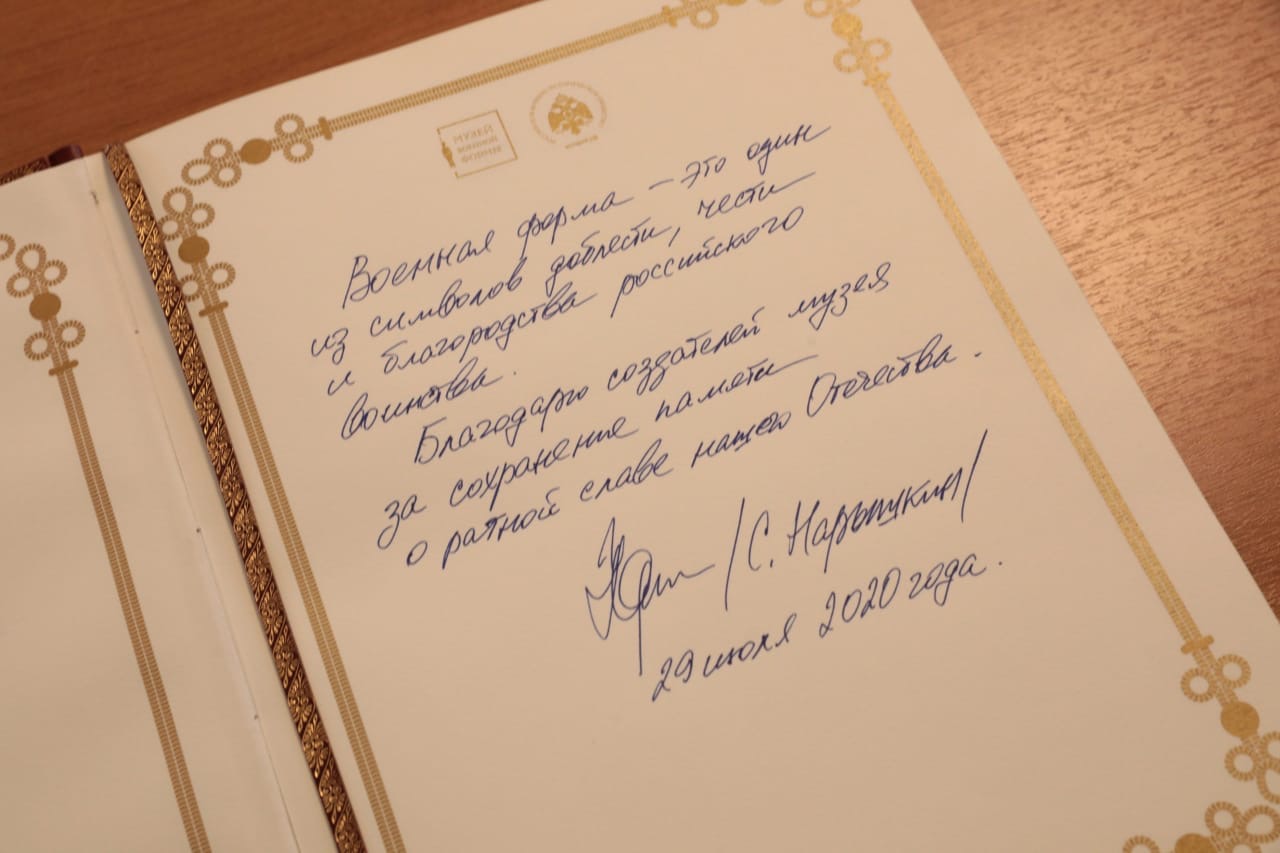 МУЗЕЙ
ВОЕННОЙ
ФОРМЫ
Военная форма – это один
из символов доблести, чести
и благородства российского
воинства.
Благодарю создателей музея
за сохранение памяти
о ратной славе нашего Отечества.
/С. Нарышкин/
29 июля 2020 года.